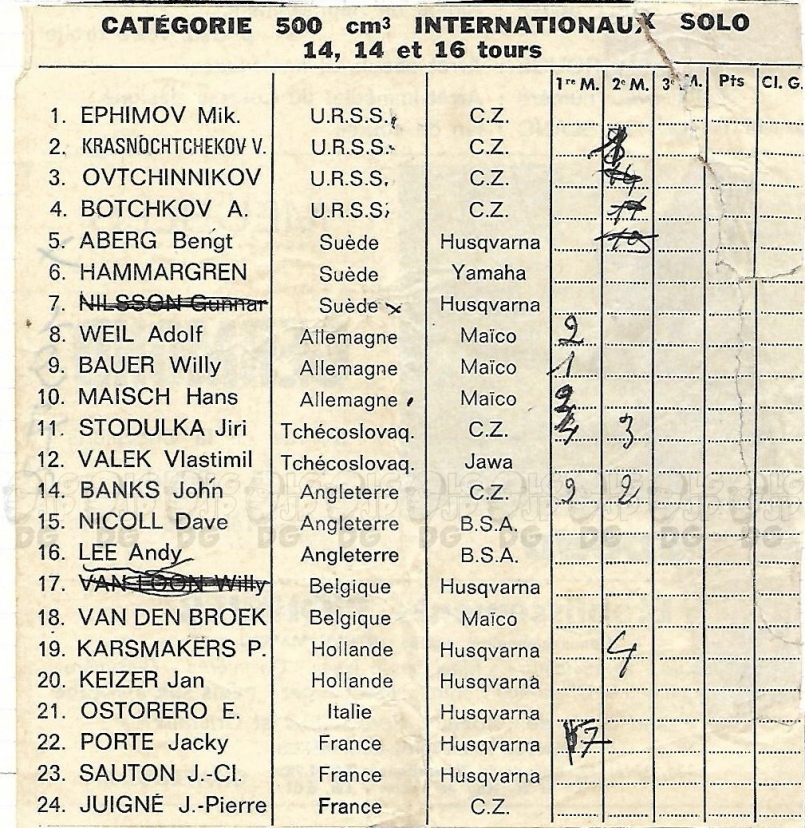 CATÉGORIE 500 cm³ INTERNATIONAUX SOLO
14, 14 et 16 tours
1re M. 2e M. 3e M. Pts Cl. G.
1. EPHIMOV Mik. U.R.S.S. C.Z.
2. KRASNOCHTCHEKOV V. U.R.S.S. C.Z.
3. OVTCHINNIKOV U.R.S.S. C.Z.
4. BOTCHKOV A. U.R.S.S. C.Z.
5. ABERG Bengt Suède Husqvarna
6. HAMMARGREN Suède Yamaha
7. NILSSON Gunnar Suède x Husqvarna
8. WEIL Adolf Allemagne Maïco 2
9. BAUER Willy Allemagne Maïco 1
10. MAISCH Hans Allemagne Maïco
11. STODULKA Jiri Tchécoslovaq. C.Z. 4 3
12. VALEK Vlastimil Tchécoslovaq. Jawa
14. BANKS John Angleterre C.Z. 3 2
15. NICOLL Dave Angleterre B.S.A.
16. LEE Andy Angleterre B.S.A.
17. VAN LOON Willy Belgique Husqvarna
18. VAN DEN BROEK Belgique Maïco
19. KARSMAKERS P. Hollande Husqvarna 4
20. KEIZER Jan Hollande Husqvarna
21. OSTORERO E. Italie Husqvarna
22. PORTE Jacky France Husqvarna
23. SAUTON J.-Cl. France Husqvarna
24. JUIGNÉ J.-Pierre France C.Z.